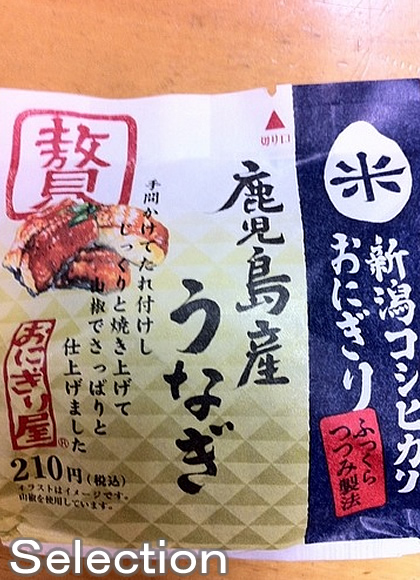 米
新潟コシヒカリ
おにぎり
ふっくら
つつみ製法
切り口
鹿児島産
うなぎ
贅
手間かけてたれ付けし
じっくりと焼き上げて
山椒でさっぱりと
仕上げました
おにぎり屋®
210円(税込)
イラストはイメージです。
山椒を使用しています。
Selection